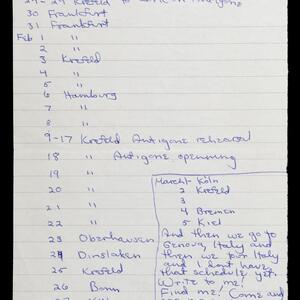 30 Frankfurt
31 Frankfurt
Feb 1 "
2 "
3 Krefeld
4 "
5 "
6 Hamburg
7 "
8 "
9-17 Krefeld Antigone rehearsal
18 " Antigone openning
19 "
20 "
21 "
22 "
23 Oberhausen
24 Dinslaken
25 Krefeld
26 Bonn
March 1- Köln
2 Krefeld
3
4 Bremen
5 Kiel
And then we go to
Genova, Italy and
then we tour Italy
and I don't have
that schedule yet.
Write to me!
Find me! Come and